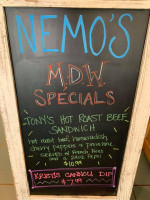 NEMO'S
M.D.W
SPECIALS
TONY'S HOT ROAST BEEF
SANDWICH
hot roast beef, horseradish,
cherry peppers & provolone
served w/ French Fries
and a
$10.99
KRISTI'S CANNOLI DIP
$7.99